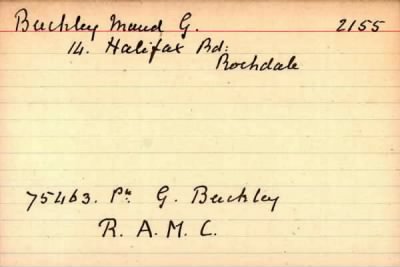 Buckley Maud G. 2155
14. Halifax Rd:
Rochdale
75463. Pte G. Buckley
R. A. M. C.